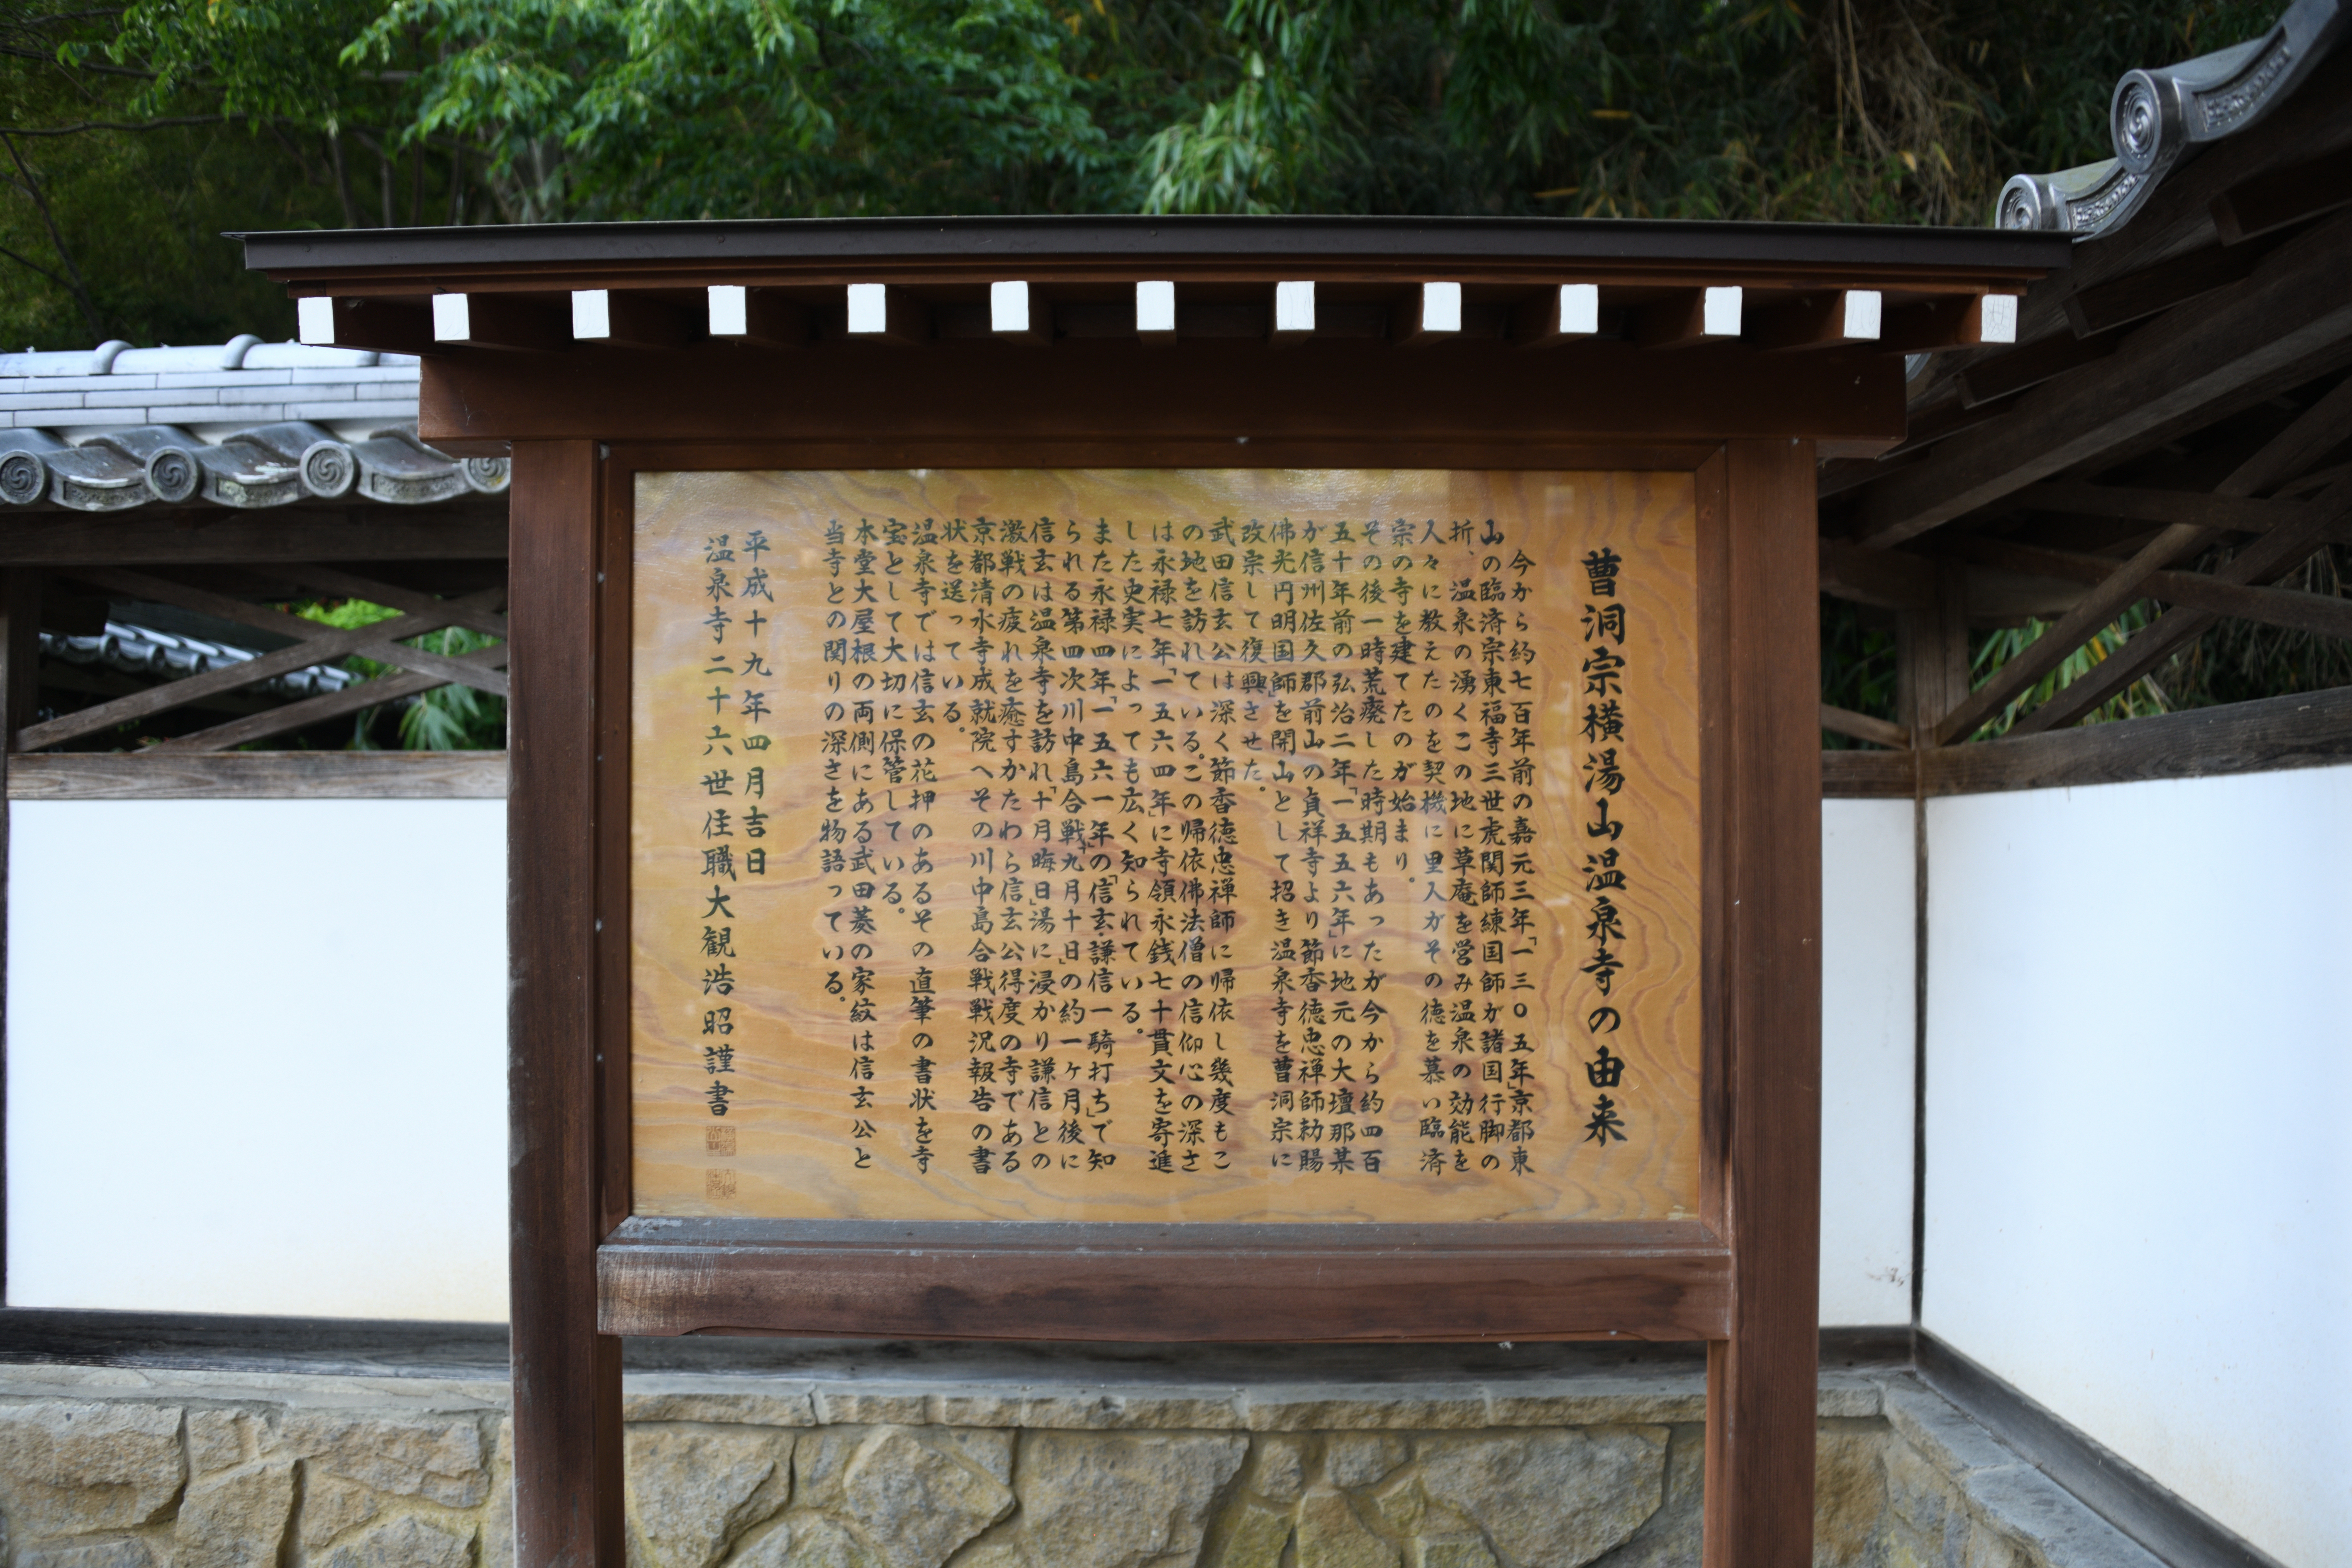 曹洞宗横湯山温泉寺の由来
今から約七百年前の嘉元三年「一三〇五年」京都東
山の臨済宗東福寺三世虎関師練国師が諸国行脚の
折、温泉の湧くこの地に草庵を営み温泉の効能を
人々に教えたのを契機に里人がその徳を慕い臨済
宗の寺を建てたのが始まり。
その後一時荒廃した時期もあったが今から約四百
五十年前の弘治二年「一五五六年」に地元の大壇那某
が信州佐久郡前山の貞祥寺より節香徳忠禅師勅賜
佛光円明国師」を開山として招き温泉寺を曹洞宗に
改宗して復興させた。
武田信玄公は深く節香徳忠禅師に帰依し幾度もこ
の地を訪れている。この帰依佛法僧の信仰心の深さ
は永禄七年「一五六四年」に寺領永銭七十貫文を寄進
した史実によっても広く知られている。
また永禄四年「一五六一年」の「信玄・謙信一騎打ち」で知
られる第四次川中島合戦「九月十日」の約一ヶ月後に
信玄は温泉寺を訪れ「十月晦日」湯に浸かり謙信との
激戦の疲れを癒すかたわら信玄公得度の寺である
京都清水寺成就院へその川中島合戦戦況報告の書
状を送っている。
温泉寺では信玄の花押のあるその直筆の書状を寺
宝として大切に保管している。
本堂大屋根の両側にある武田菱の家紋は信玄公と
当寺との関りの深さを物語っている。
平成十九年四月吉日
温泉寺二十六世住職大観浩昭謹書